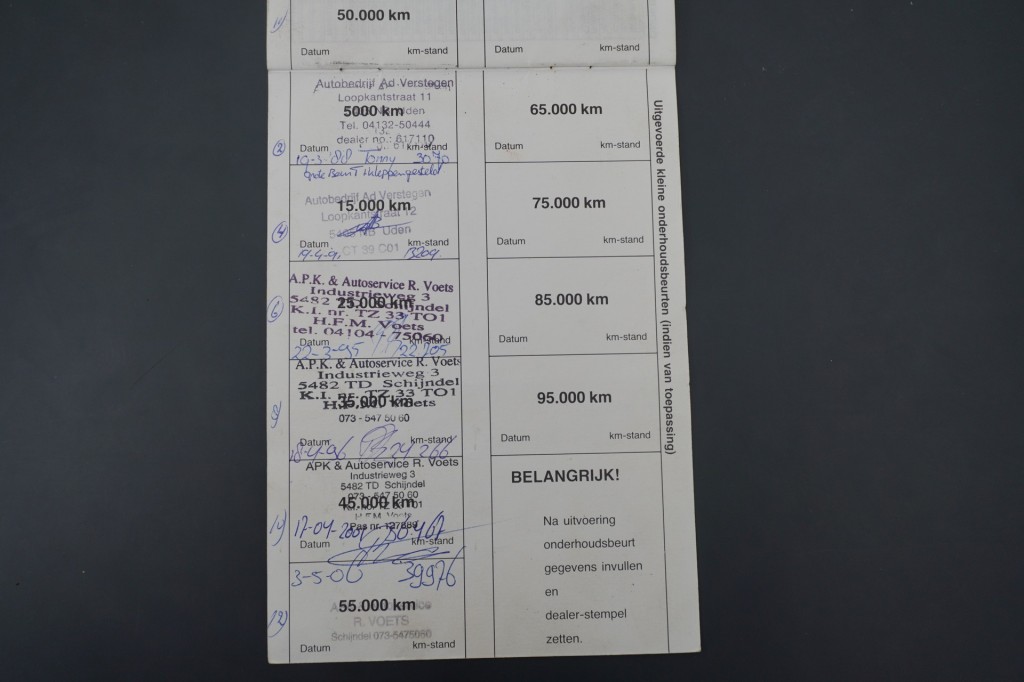 50.000 km
Datum km-stand
Datum km-stand
Autobedrijf Ad Verstegen
Loopkantstraat 11
5000 km
Uden
Tel. 04132-50444
dealer no.: 617110
Datum km-stand
2)
10-3-'88 Tomy 3070
Autobedrijf Ad Verstegen
15.000 km
Loopkantstraat 12
4)
NB Uden
Datum km-stand
CT 99 C01
19-4-91 13209
A.P.K. & Autoservice R. Voets
Industrieweg 3
5482 Schijndel
25.000 km
K.I. nr. TZ 33 TO1
H.F.M. Voets
6)
tel. 04104 - 75060
Datum km-stand
22-3-95 22105
A.P.K. & Autoservice R. Voets
Industrieweg 3
5482 TD Schijndel
K.I. nr. TZ 33 TO1
35.000 km
Voets
8)
073 - 547 50 60
Datum km-stand
18-4-96 24266
APK & Autoservice R. Voets
Industrieweg 3
5482 TD Schijndel
073 - 547 50 60
45.000 km
Pas nr.
17-04-2001 30.467
Datum km-stand
3-5-06 39976
55.000 km
12)
R. VOETS
Schijndel 073-5475060
Datum km-stand
65.000 km
Datum km-stand
75.000 km
Datum km-stand
85.000 km
Datum km-stand
95.000 km
Datum km-stand
BELANGRIJK!
Na uitvoering
onderhoudsbeurt
gegevens invullen
en
dealer-stempel
zetten.
Uitgevoerde kleine onderhoudsbeurten (indien van toepassing)